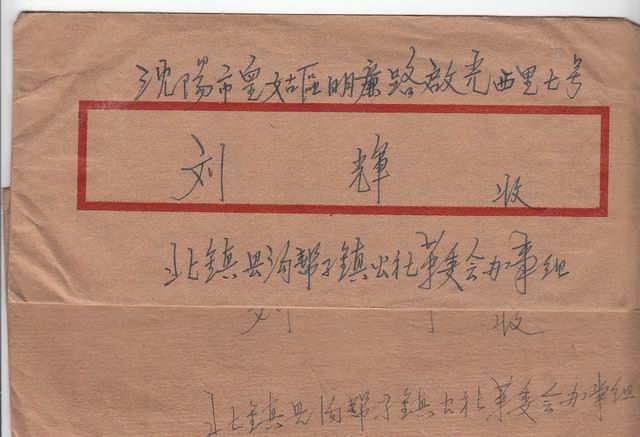 沈陽市皇姑區明廉路啟光西里七号
刘 輝 收
北鎮县沟帮子鎮公社革委会办事组
刘 收
北鎮县沟帮子鎮公社革委会办事组